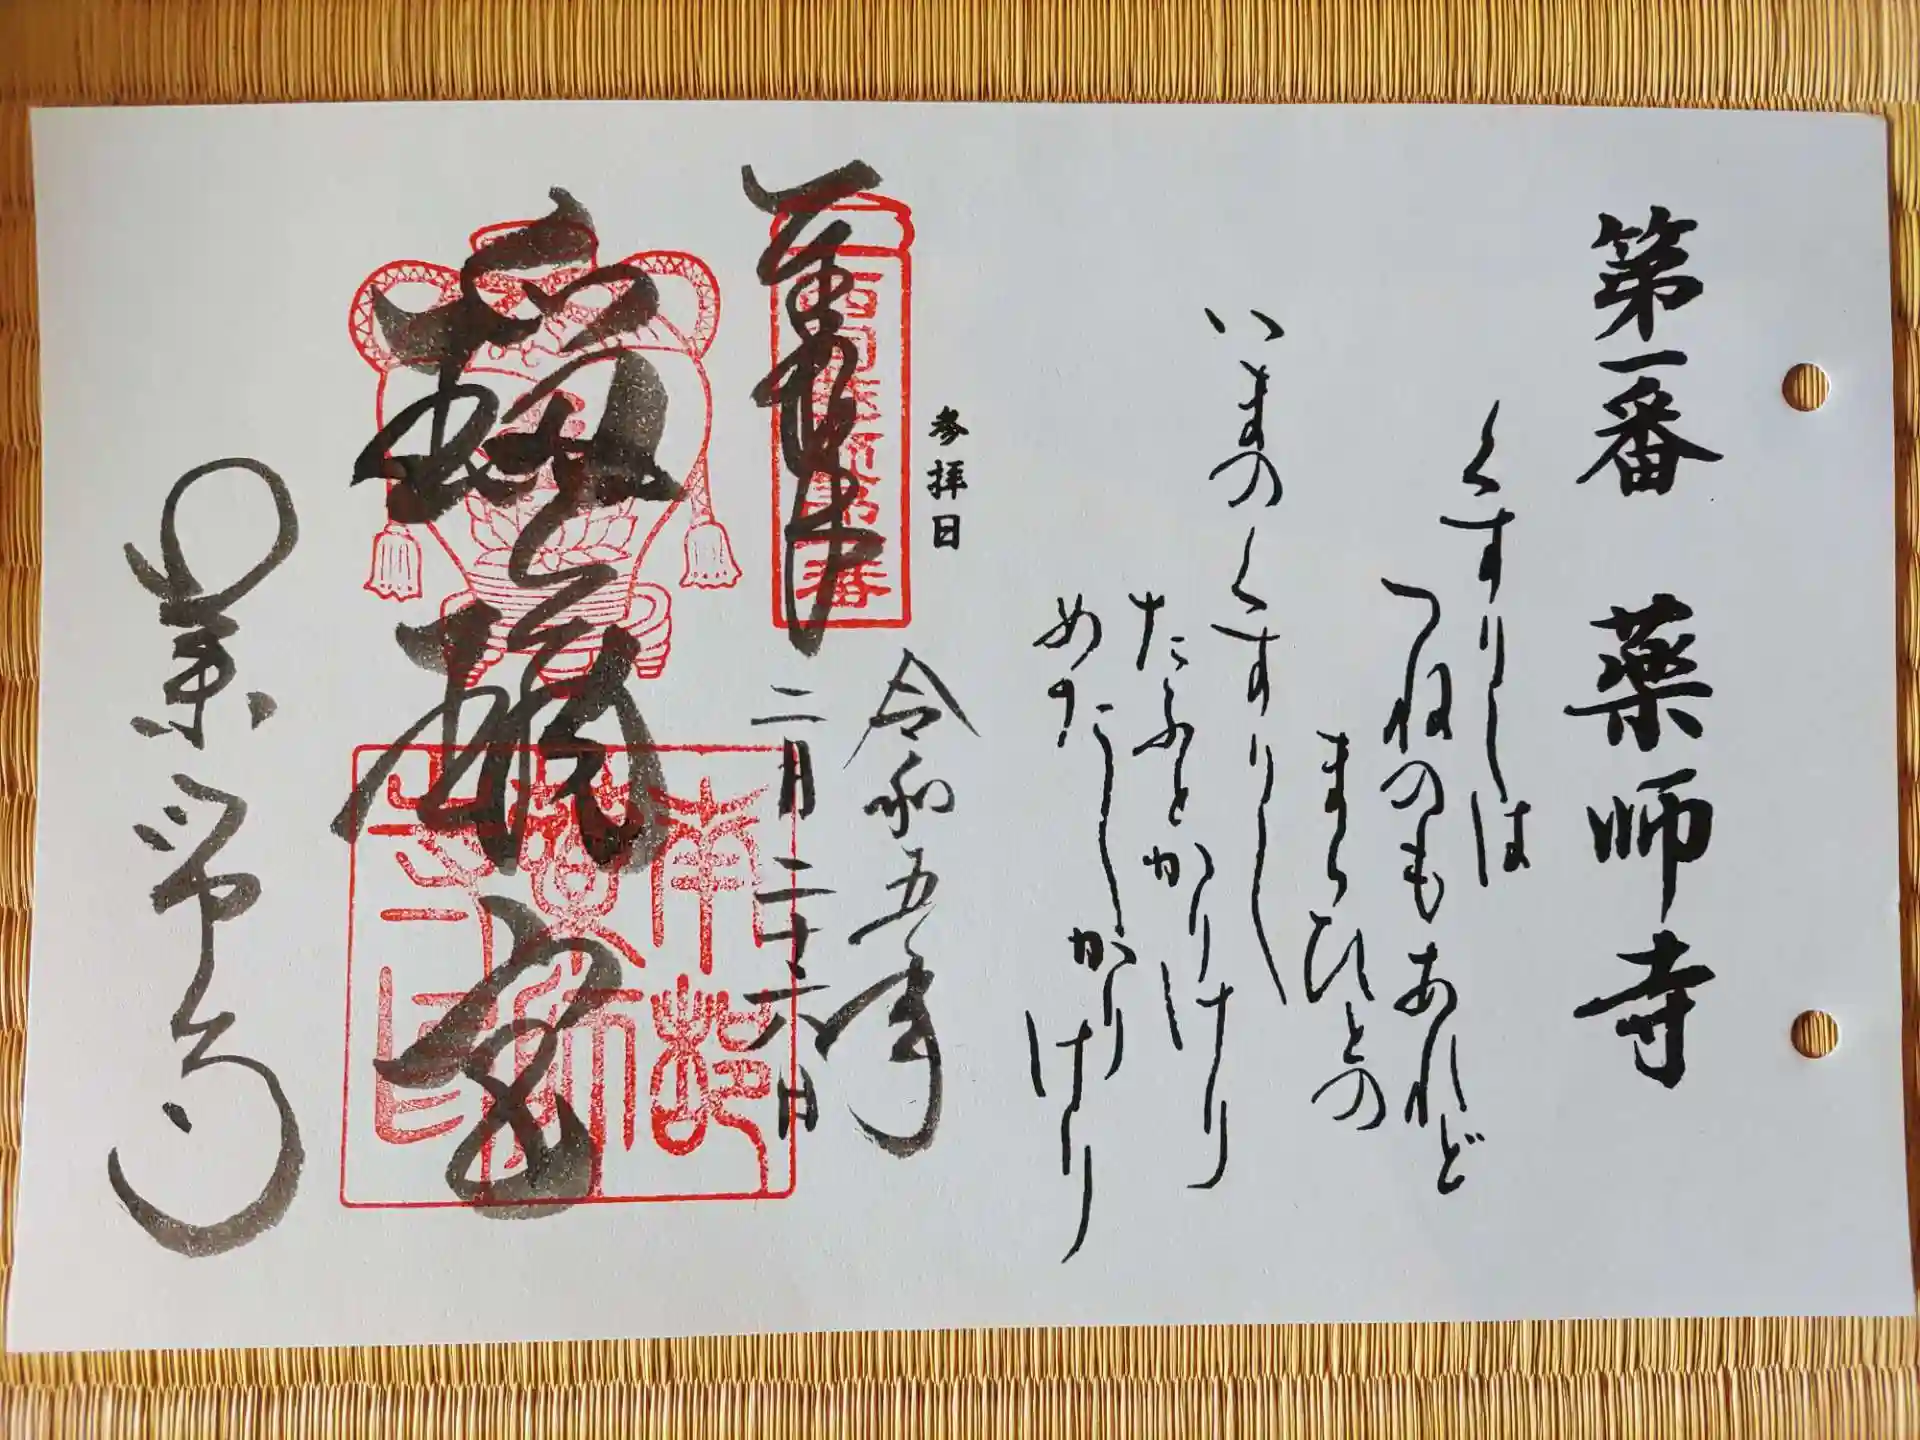 第一番 薬師寺
くすりしは
つねのもあれど
まらひとの
いまのくすりし
たふとかりけり
めだしかりけり
参拝日
令和五年
二月二十六日
奉拝
西国薬師第一番
瑠璃宮
薬師寺